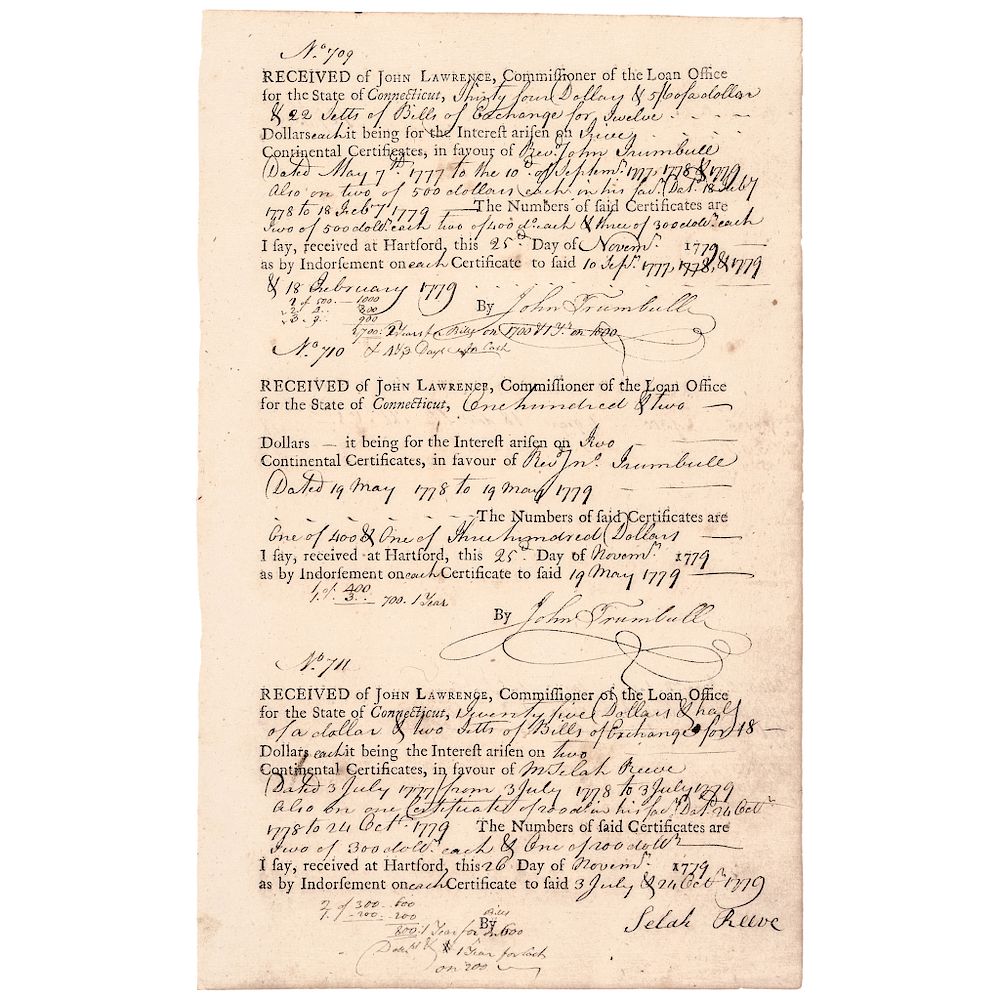 No 709
RECEIVED of JOHN LAWRENCE, Commissioner of the Loan Office
for the State of Connecticut, Thirty four Dollars & 5/6 of a dollar
& 22 Setts of Bills of Exchange for Twelve
Dollars each it being for the Interest arisen on Five
Continental Certificates, in favour of Revd John Trumbull
(Dated May 7th 1777 to the 10th of Septemr 1777, 1778 & 1779
Also on two of 500 dollars each in his favr (Datd 18 Feby
1778 to 18 Feby 1779 — The Numbers of said Certificates are
Two of 500 dollrs each two of 400 do each & three of 300 dollrs each
I say, received at Hartford, this 25d Day of Novemr 1779
as by Indorsement on each Certificate to said 10 Sepr 1777, 1778, & 1779
& 18 February 1779
2 of 500 - 1000
2 - 4 - 800
3 - 3 - 900
By John Trumbull
2700 2 Years for Bills on 1700 & 1 Yr on 1000
No 710 & 4 M 3 Days for Cash
RECEIVED of JOHN LAWRENCE, Commissioner of the Loan Office
for the State of Connecticut, One hundred & two —
Dollars — it being for the Interest arisen on Two
Continental Certificates, in favour of Revd Jno Trumbull
(Dated 19 May 1778 to 19 May 1779 —
The Numbers of said Certificates are
One of 400 & One of Three hundred (Dollars —
I say, received at Hartford, this 25d Day of Novemr 1779
as by Indorsement on each Certificate to said 19 May 1779 —
1 of 400
1 . 3 .. 700. 1 Year
By John Trumbull
No 711
RECEIVED of JOHN LAWRENCE, Commissioner of the Loan Office
for the State of Connecticut, Twenty five Dollars & half
of a dollar & two Setts of Bills of Exchange for 18 —
Dollars each it being the Interest arisen on two
Continental Certificates, in favour of Mr Selah Reeve
(Dated 3 July 1777) from 3 July 1778 to 3 July 1779
Also on one Certificate of 200 d in his favr Datd 24 Octr
1778 to 24 Octr 1779 The Numbers of said Certificates are
Two of 300 dollrs each & One of 200 dollrs —
I say, received at Hartford, this 26 Day of Novemr 1779
as by Indorsement on each Certificate to said 3 July & 24 Octr 1779
2 of 300 - 600
1 of 200 - 200
By Selah Reeve
800 1 Year for Bills 600
& 1 Year for Cash
on 200